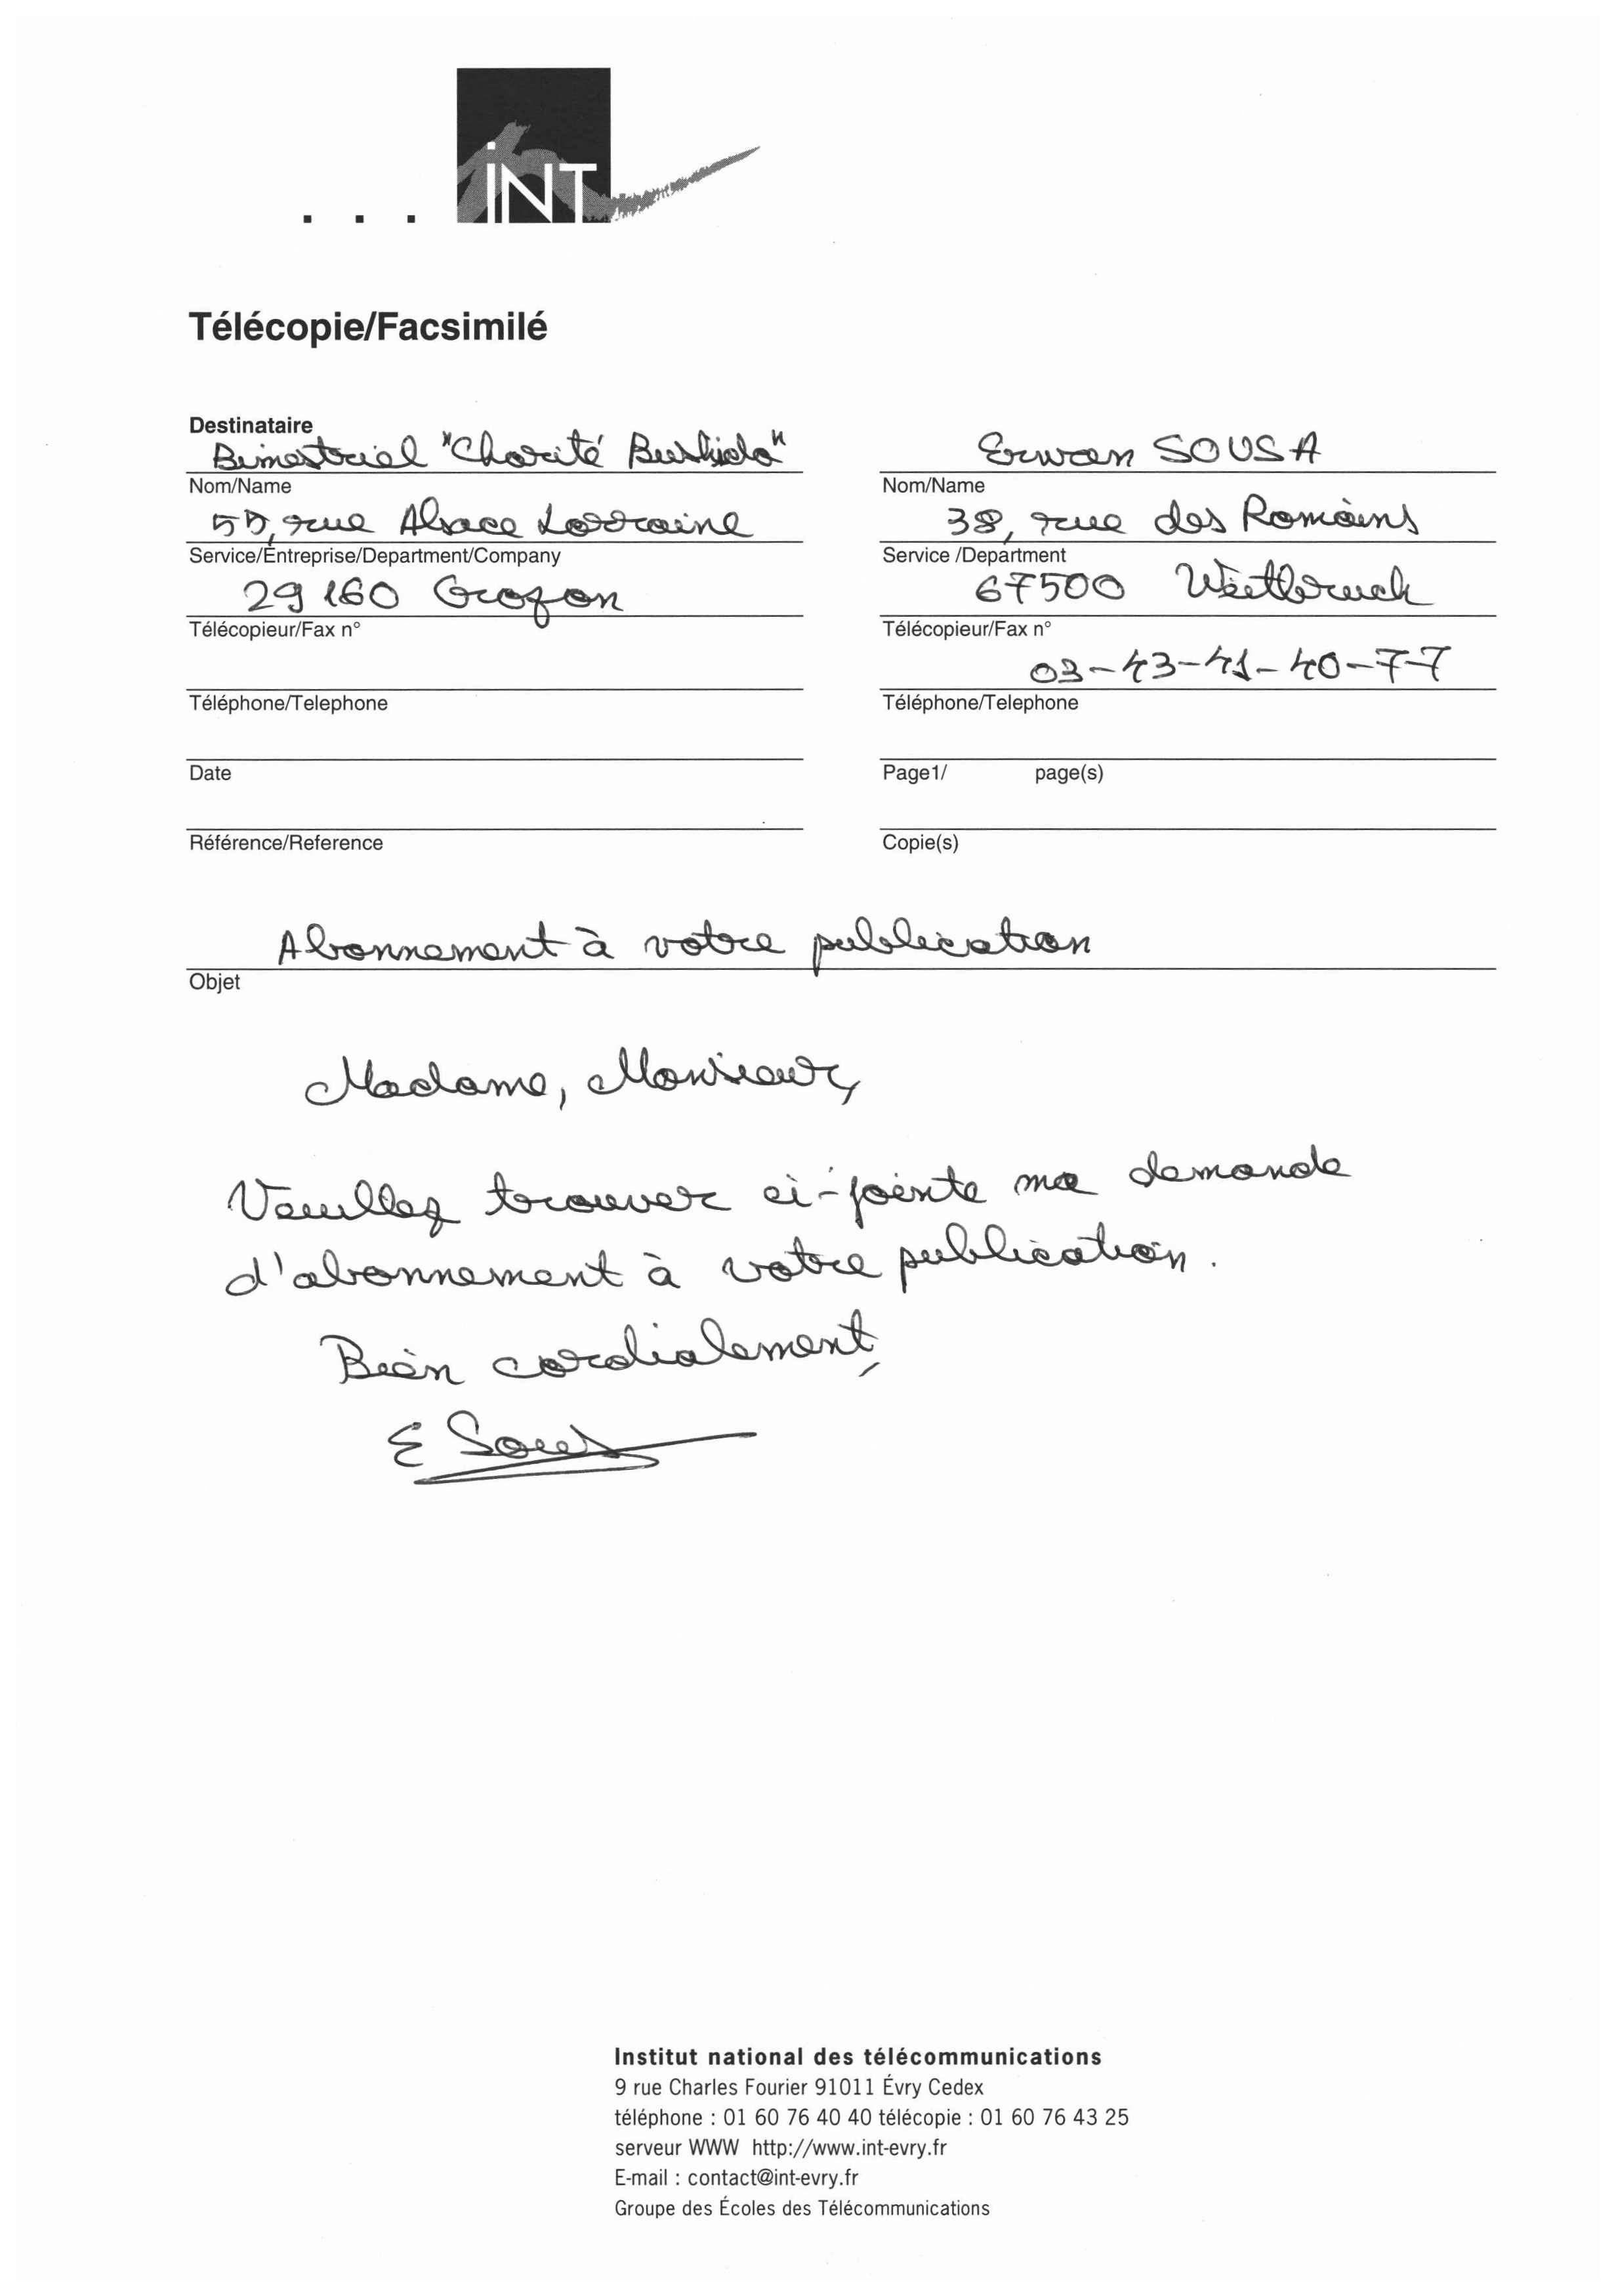 ... INT
Télécopie/Facsimilé
Destinataire
Bimestriel "Charité Bushido"
Nom/Name
55, rue Alsace Lorraine
Service/Entreprise/Department/Company
29160 Crozon
Télécopieur/Fax n°
Téléphone/Telephone
Date
Référence/Reference
Erwan SOUSA
Nom/Name
38, rue des Romains
Service /Department
67500 Weitbruch
Télécopieur/Fax n°
03-43-41-40-77
Téléphone/Telephone
Page1/ page(s)
Copie(s)
Abonnement à votre publication
Objet
Madame, Monsieur,
Veuillez trouver ci-jointe ma demande
d'abonnement à votre publication.
Bien cordialement,
E Sousa
Institut national des télécommunications
9 rue Charles Fourier 91011 Évry Cedex
téléphone : 01 60 76 40 40 télécopie : 01 60 76 43 25
serveur WWW http://www.int-evry.fr
E-mail : contact@int-evry.fr
Groupe des Écoles des Télécommunications